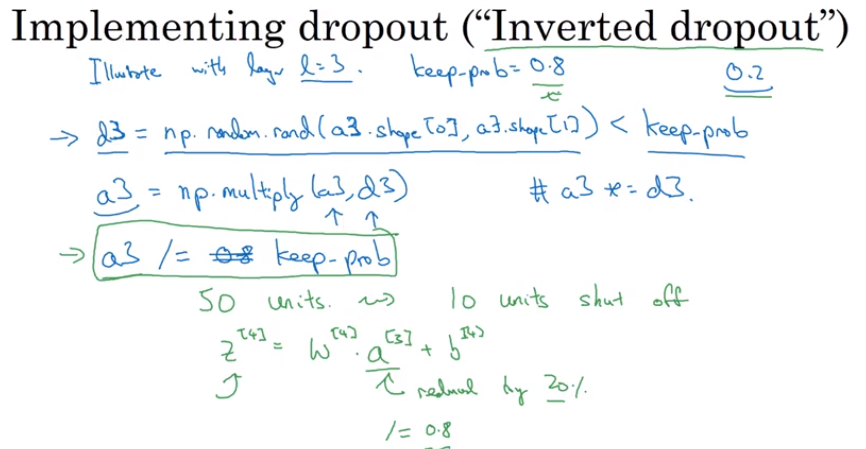 Implementing dropout (“Inverted dropout”)
Illustrate with layer l=3. keep-prob= 0.8 0.2
→ d3 = np.random.rand(a3.shape[0], a3.shape[1]) < keep-prob
a3 = np.multiply(a3, d3) # a3 *= d3.
→ a3 /= 0.8 keep-prob
50 units. ⇝ 10 units shut off
z^[4] = W^[4] · a^[3] + b^[4]
reduced by 20%
/= 0.8